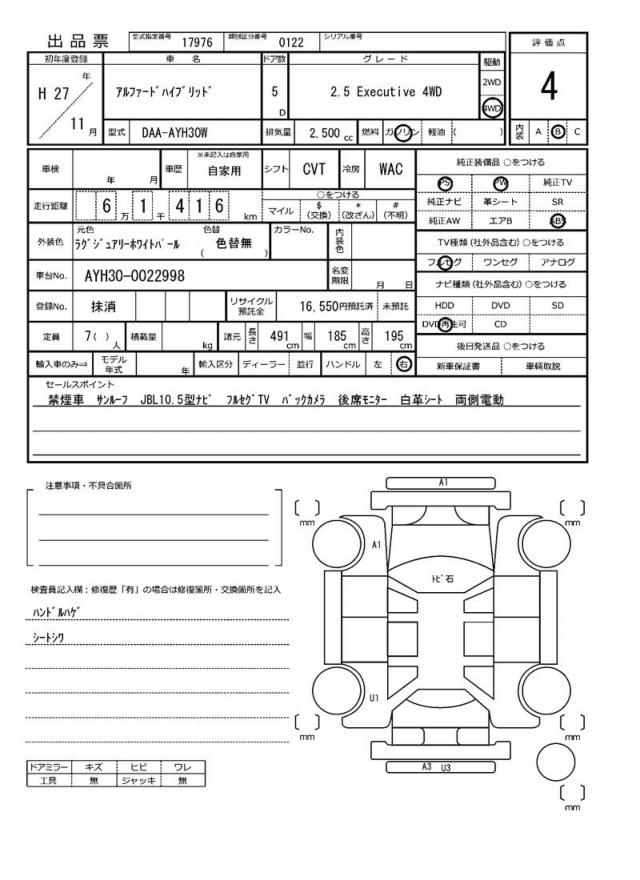 出品票 型式指定番号 17976 類別区分番号 0122 シリアル番号
初年度登録 車 名 ドア数 グレード 駆動 評価点
H 27 年 11 月 アルファードハイブリッド 5 D 2.5 Executive 4WD 2WD 4WD 4
型式 DAA-AYH30W 排気量 2,500 cc 燃料 ガソリン 軽油 ( ) 内装 A B C
車検 年 月 車歴 ※未記入は自家用 自家用 シフト CVT 冷房 WAC
純正装備品 ○をつける
PS PW 純正TV
純正ナビ 革シート SR
純正AW エアB ABS
走行距離 6 万 1 千 4 1 6 km ○をつける
マイル $ (交換) * (改ざん) # (不明)
外装色 元色 ラグジュアリーホワイトパール 色替 ( 色替無 ) カラーNo. 内装色
TV種類 (社外品含む) ○をつける
フルセグ ワンセグ アナログ
車台No. AYH30-0022998 名変期限 月 日
ナビ種類 (社外品含む) ○をつける
HDD DVD SD
DVD再生可 CD
登録No. 抹消 リサイクル預託金 16,550円預託済 未預託
定員 7( ) 人 積載量 kg 諸元 長さ 491 cm 幅 185 cm 高さ 195 cm
後日発送品 ○をつける
新車保証書 車輌取説
輸入車のみ⇒ モデル年式 年 輸入区分 ディーラー 並行 ハンドル 左 右
セールスポイント
禁煙車 サンルーフ JBL10.5型ナビ フルセグTV バックカメラ 後席モニター 白革シート 両側電動
注意事項・不具合箇所
検査員記入欄：修復歴「有」の場合は修復箇所・交換箇所を記入
ハンドルハゲ
シートシワ
ドアミラー キズ ヒビ ワレ
工具 無 ジャッキ 無
A1
mm mm
A1
トビ石
U1
mm mm
A3 U3
mm